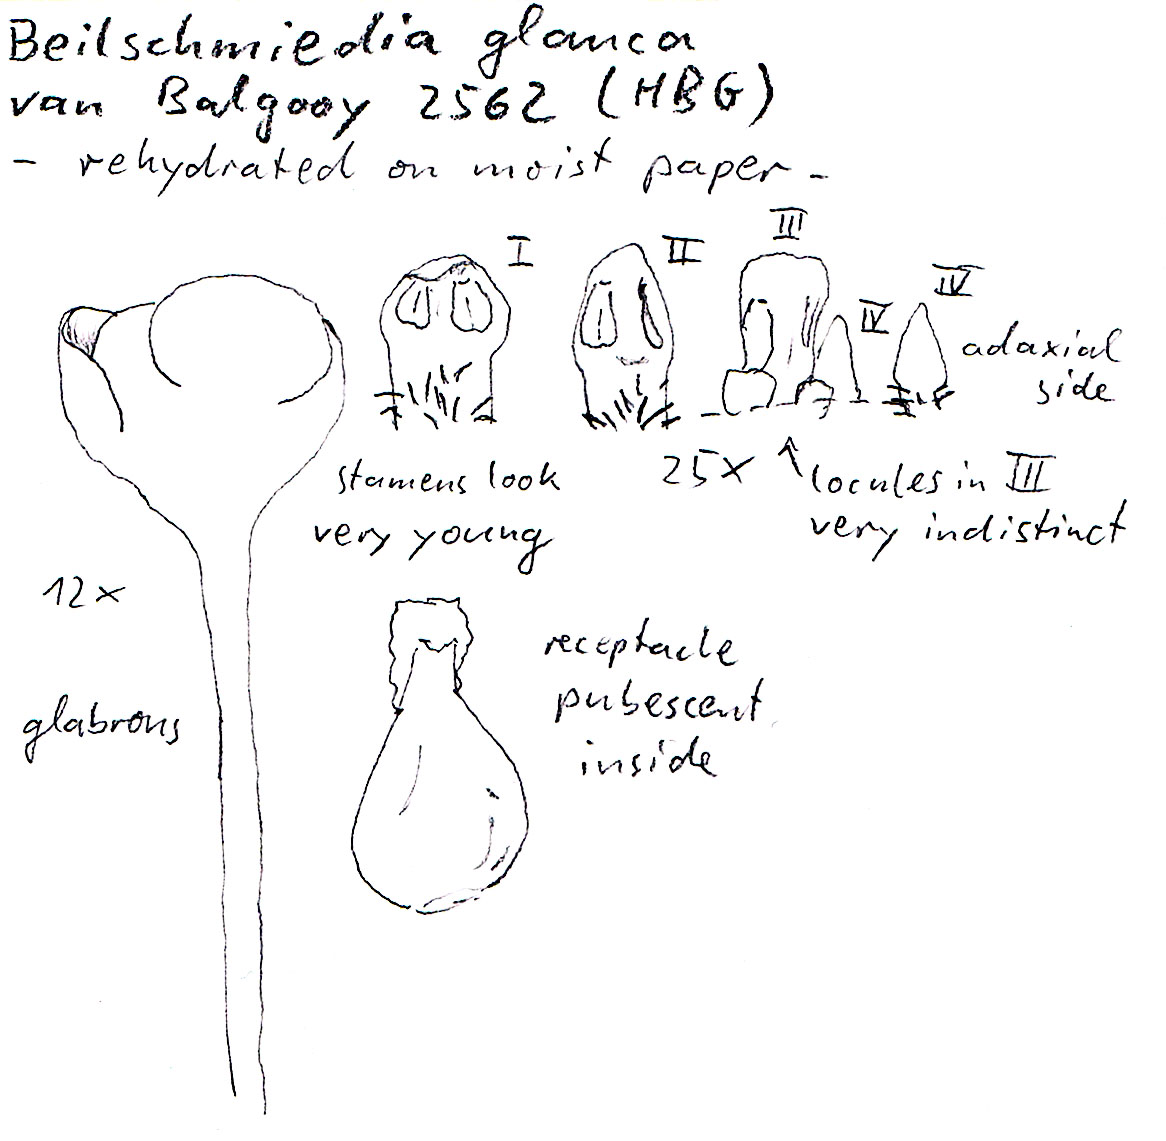 Beilschmiedia glauca
van Balgooy 2562 (HBG)
- rehydrated on moist paper -
I
II
III
IV
IV
adaxial
side
stamens look
very young
25x
↑ locules in III
very indistinct
12x
glabrous
receptacle
pubescent
inside